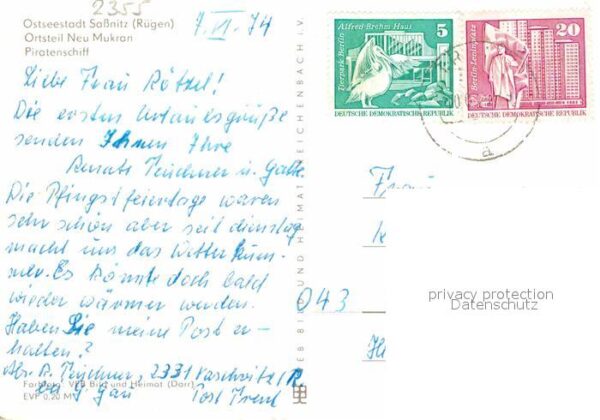 2355
Ostseestadt Saßnitz (Rügen)
Ortsteil Neu Mukran
Piratenschiff
7. VI. 74
Liebe Frau Rötzel!
Die ersten Urlaubsgrüße
senden Ihnen Ihre
Renate Teichner u. Gatte.
Die Pfingstfeiertage waren
sehr schön aber seit dienstag
macht uns das Wetter kum-
mer. Es könnte doch bald
wieder wärmer werden.
Haben Sie meine Post er-
halten?
Abs. R. Teichner, 2331
bei G. Gau
Post
Farbfoto: VEB Bild und Heimat (Darr)
EVP 0,20 M
VEB BILD UND HEIMAT REICHENBACH i. V.
Tierpark Berlin
Alfred-Brehm-Haus
5
DEUTSCHE DEMOKRATISCHE REPUBLIK
Berlin-Leninplatz
20
DEUTSCHE DEMOKRATISCHE REPUBLIK
Frau
043
privacy protection
Datenschutz